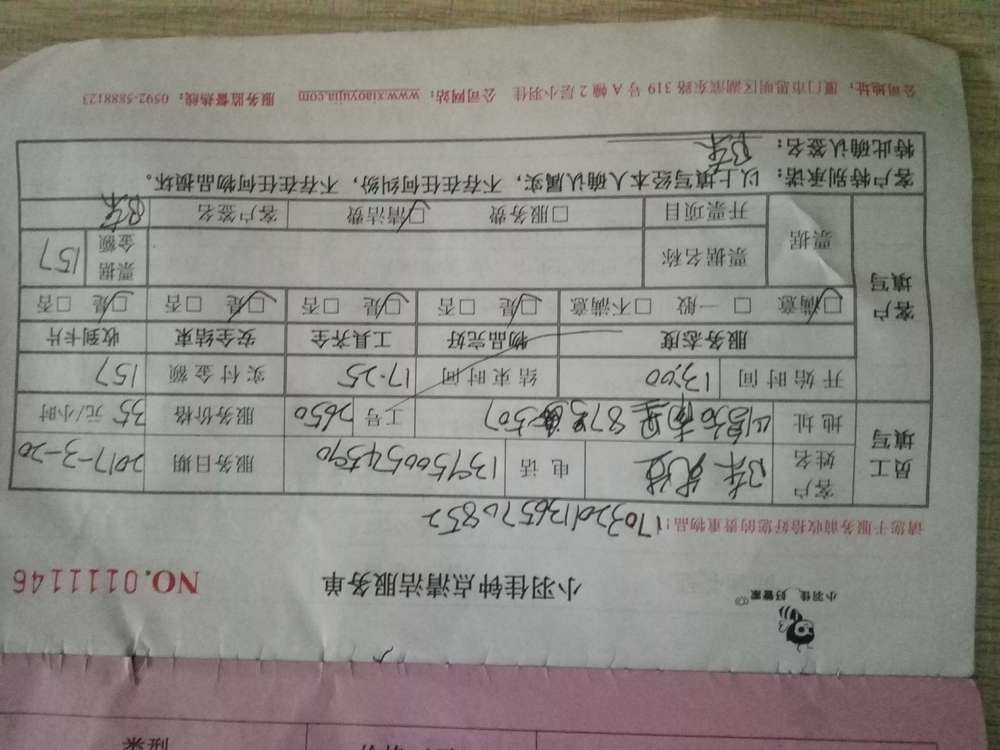 小羽佳 好管家
小羽佳钟点清洁服务单
NO.0111146
请您于服务前收拾好您的贵重物品！170320136570852
员工填写 客户姓名 电话 服务日期 2017-3-20
地址 工号 2650 服务价格 35 元/小时
客户填写 开始时间 13:00 结束时间 17:25 实付金额 157
服务态度 物品完好 工具齐全 安全结束 收到卡片
☑满意 □一般 □不满意 ☑是 □否 ☑是 □否 ☑是 □否 ☑是 □否
票据 票据名称 票据金额 157
开票项目 □服务费 ☑清洁费 客户签名
客户特别承诺：以上填写经本人确认属实，不存在任何纠纷，不存在任何物品损坏。
特此确认签名：
公司地址：厦门市思明区湖滨东路 319 号 A 幢 2 层小羽佳 公司网站：www.xiaoyujia.com 服务监督热线：0592-5888123